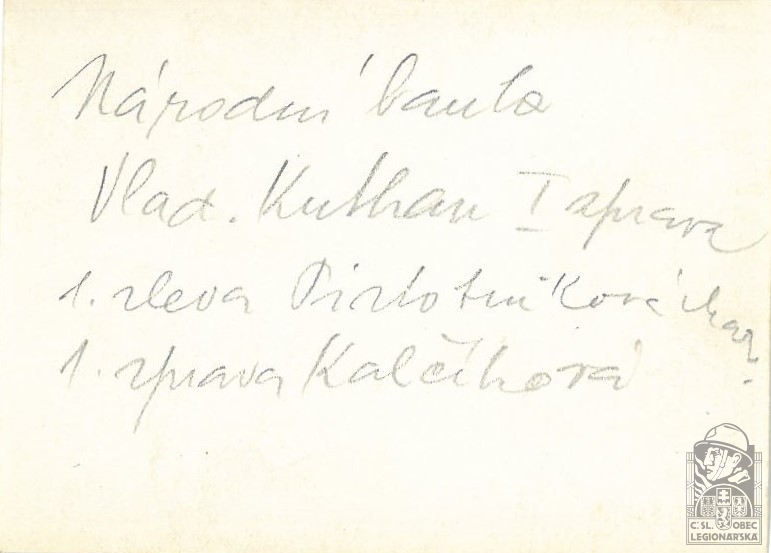 Národní banka
Vlad. Kuthan I zprava
1. zleva
1. zprava Kalčíková
Č. SL. OBEC
LEGIONÁŘSKÁ